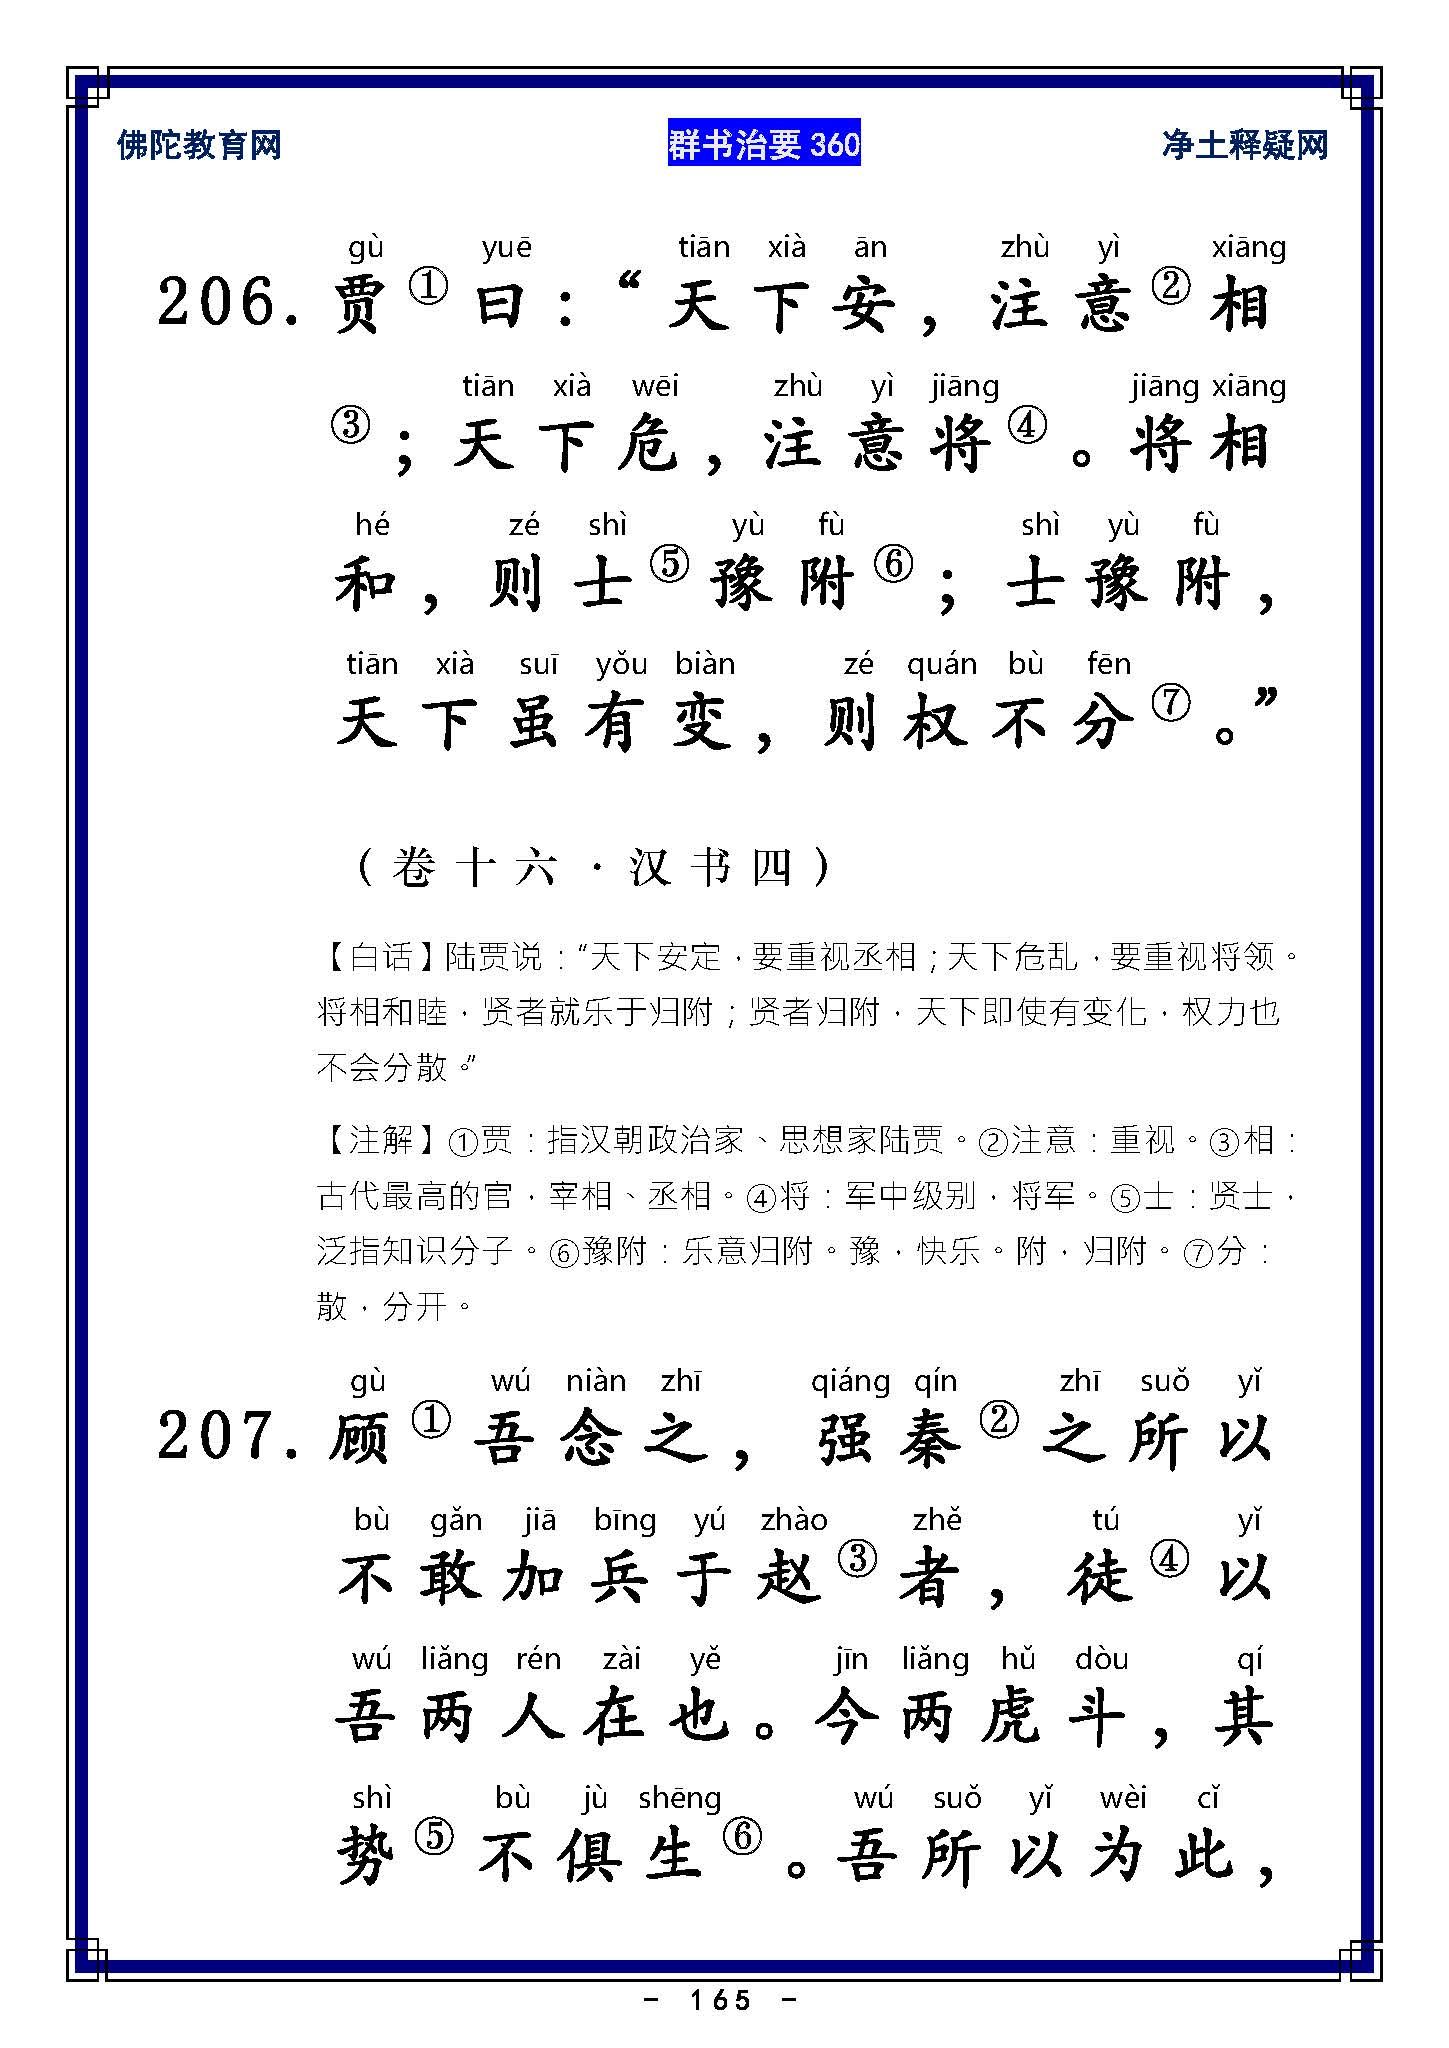 佛陀教育网 群书治要 360 净土释疑网
gù yuē tiān xià ān zhù yì xiāng
206. 贾①曰：“天下安，注意②相
tiān xià wēi zhù yì jiāng jiāng xiāng
③；天下危，注意将④。将相
hé zé shì yù fù shì yù fù
和，则士⑤豫附⑥；士豫附，
tiān xià suī yǒu biàn zé quán bù fēn
天下虽有变，则权不分⑦。”
（卷十六·汉书四）
【白话】陆贾说：“天下安定，要重视丞相；天下危乱，要重视将领。
将相和睦，贤者就乐于归附；贤者归附，天下即使有变化，权力也
不会分散。”
【注解】①贾：指汉朝政治家、思想家陆贾。②注意：重视。③相：
古代最高的官，宰相、丞相。④将：军中级别，将军。⑤士：贤士，
泛指知识分子。⑥豫附：乐意归附。豫，快乐。附，归附。⑦分：
散，分开。
gù wú niàn zhī qiáng qín zhī suǒ yǐ
207. 顾①吾念之，强秦②之所以
bù gǎn jiā bīng yú zhào zhě tú yǐ
不敢加兵于赵③者，徒④以
wú liǎng rén zài yě jīn liǎng hǔ dòu qí
吾两人在也。今两虎斗，其
shì bù jù shēng wú suǒ yǐ wèi cǐ
势⑤不俱生⑥。吾所以为此，
- 165 -